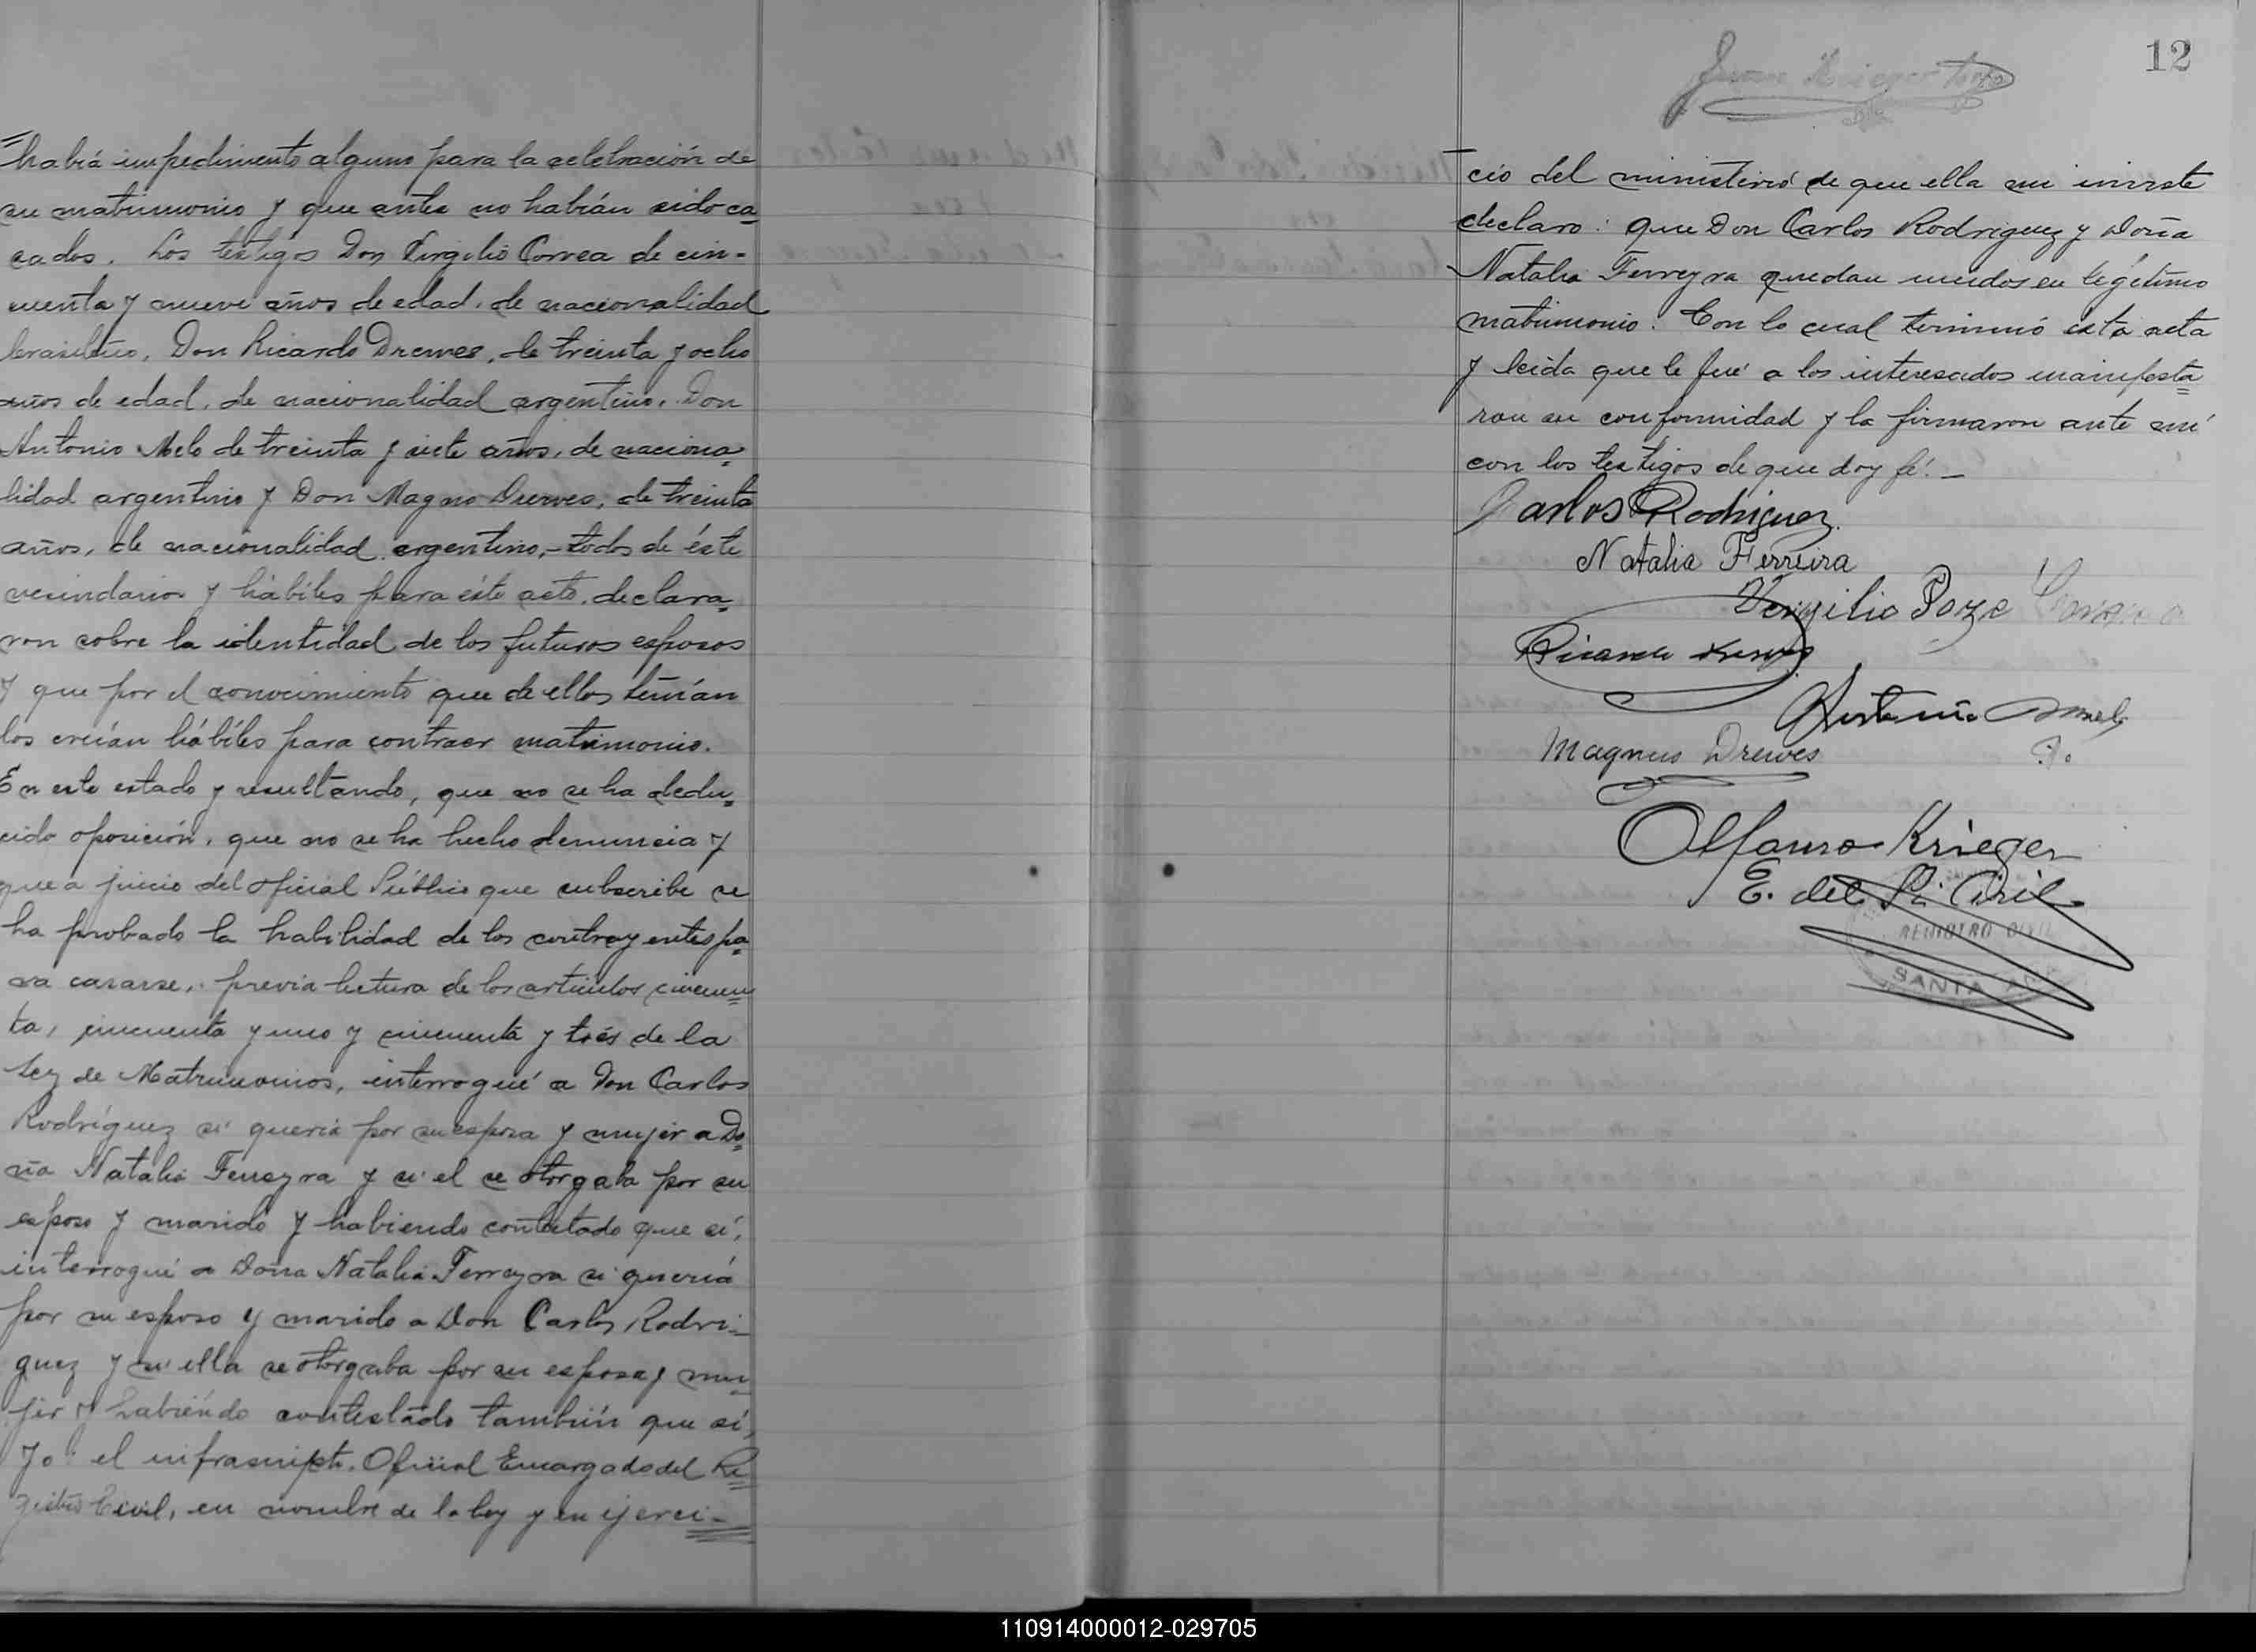 habiá impedimento alguno para la celebración de
su matrimonio y que antes no habián sido ca=
sados. Los testigos Don Virgilio Correa de cin-
cuenta y nueve años de edad, de nacionalidad
brasilero, Don Ricardo Drewes, de treinta y ocho
años de edad, de nacionalidad argentino, Don
Antonio Melo de treinta y siete años, de naciona=
lidad argentino y Don Magno Drewes, de treinta
años, de nacionalidad argentino,- todos de éste
vecindario y hábiles para éste acto, declara=
ron sobre la identidad de los futuros esposos
y que por el conocimiento que de ellos tenían
los creían hábiles para contraer matrimonio.
En este estado y resultando, que no se ha dedu=
cido oposición, que no se ha hecho denuncia y
que a juicio del Oficial Público que subscribe se
ha probado la habilidad de los contrayentes pa=
ra casarse, previa lectura de los articulos cincuen=
ta, cincuenta y uno y cincuenta y trés de la
Ley de Matrimonios, interrogué a Don Carlos
Rodríguez si queria por su esposa y mujer a Do=
ña Natalia Ferreyra y si el se otorgaba por su
esposo y marido y habiendo contestado que sí,
interrogué a Doña Natalia Ferreyra si queriá
por su esposo y marido a Don Carlos Rodri-
guez y si ella se otorgaba por su esposa y mu=
jer y habiendo contestado también que sí,
Yo el infrascripto Oficial Encargado del Re=
gistro Civil, en nombre de la ley y en ejerci-
12
Juan Krieger
cio del ministerió de que ella me inviste
declaro: que Don Carlos Rodriguez y Doña
Natalia Ferreyra quedan unidos en legítimo
matrimonio. Con lo cual terminó esta acta
y leida que le fué a los interesados manifesta=
ron su conformidad y la firmaron ante mí
con los testigos de que doy fé.-
Carlos Rodriguez
Natalia Ferreira
Virgilio
Ricardo Drewes
Antonio Melo
Magnus Drewes
Alfonso Krieger
E. del R. Civil
REGISTRO CIVIL
SANTA ANA
110914000012-029705